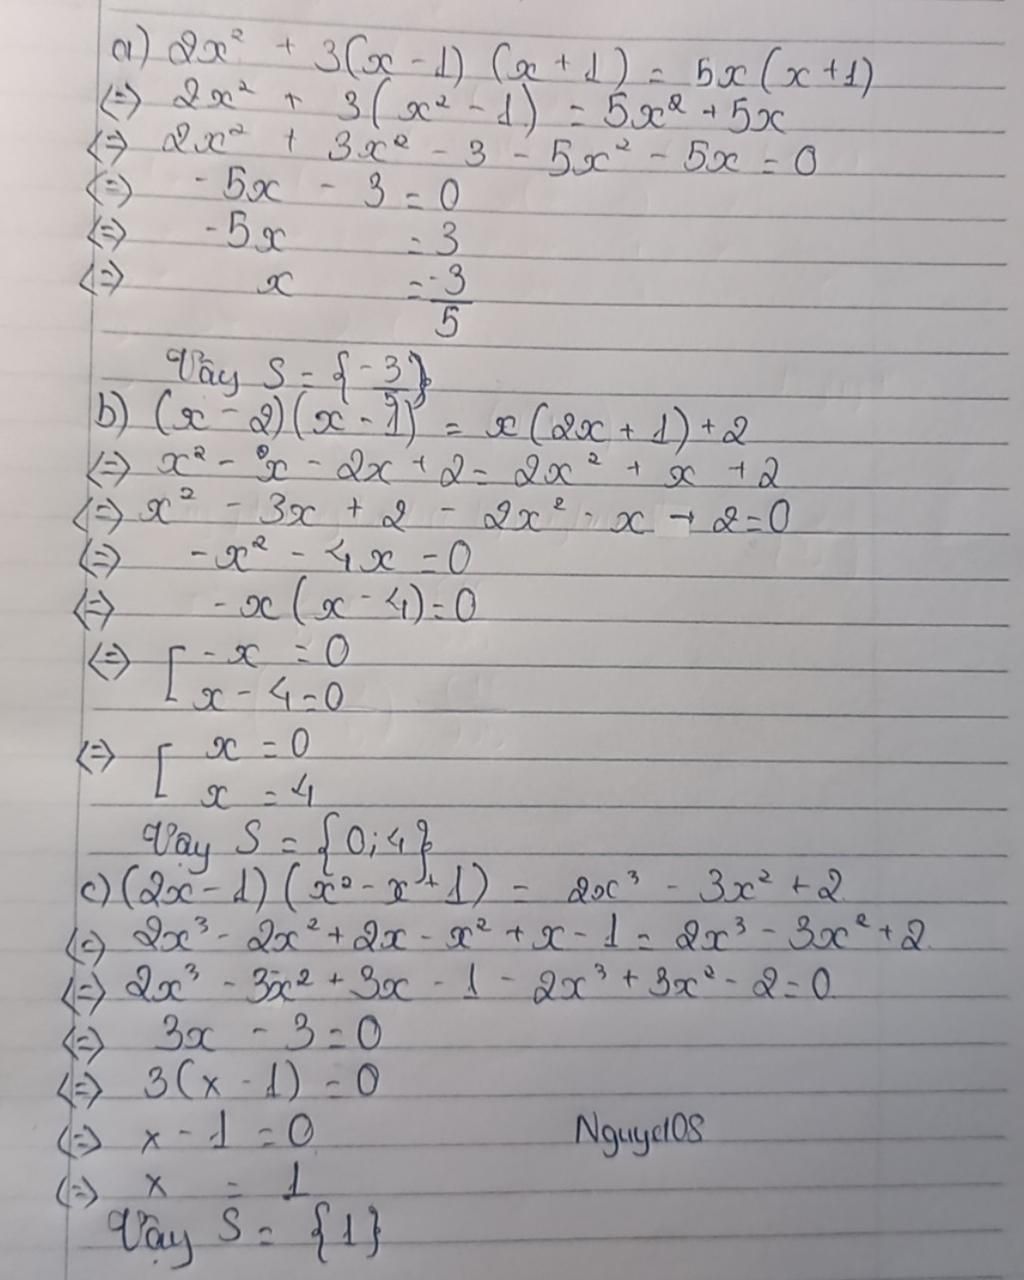 a) 2x² + 3(x - 1) (x + 1) = 5x (x + 1)
<=> 2x² + 3(x² - 1) = 5x² + 5x
<=> 2x² + 3x² - 3 - 5x² - 5x = 0
<=> -5x - 3 = 0
<=> -5x = 3
<=> x = -3/5
Vậy S = {-3/5}
b) (x - 2)(x - 1) = x(2x + 1) + 2
<=> x² - x - 2x + 2 = 2x² + x + 2
<=> x² - 3x + 2 - 2x² - x - 2 = 0
<=> -x² - 4x = 0
<=> -x(x - 4) = 0
<=> [ -x = 0
x - 4 = 0
<=> [ x = 0
x = 4
Vậy S = {0; 4}
c) (2x - 1) (x² - x + 1) = 2x³ - 3x² + 2
<=> 2x³ - 2x² + 2x - x² + x - 1 = 2x³ - 3x² + 2
<=> 2x³ - 3x² + 3x - 1 - 2x³ + 3x² - 2 = 0
<=> 3x - 3 = 0
<=> 3(x - 1) = 0
<=> x - 1 = 0
Nguyc10S
<=> x = 1
Vậy S = {1}